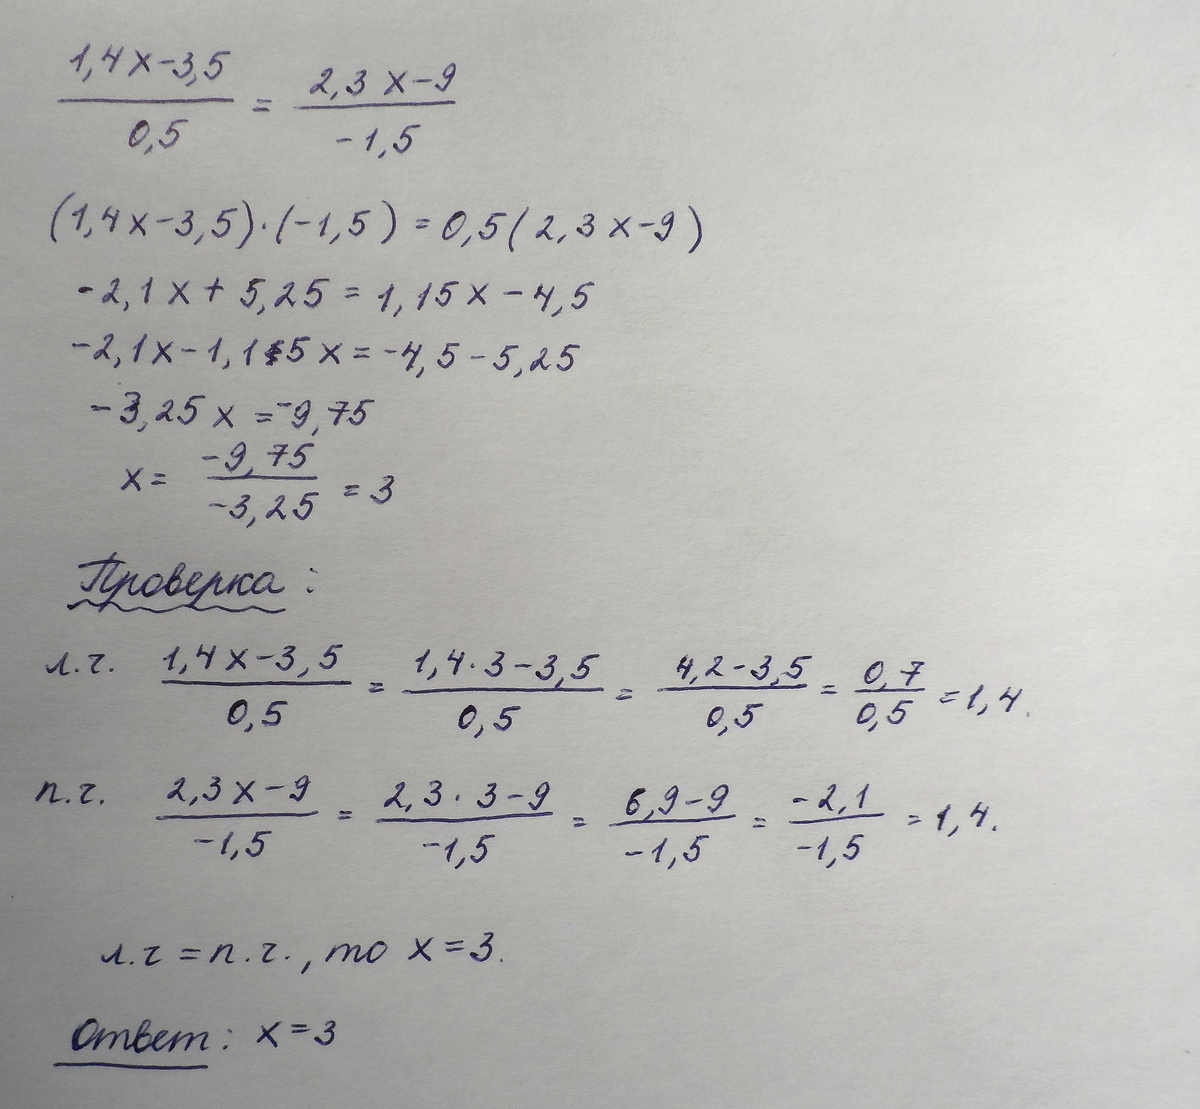 1,4x-3,5 / 0,5 = 2,3x-9 / -1,5
(1,4x-3,5)·(-1,5) = 0,5(2,3x-9)
-2,1x+5,25 = 1,15x-4,5
-2,1x-1,15x = -4,5-5,25
-3,25x = -9,75
x = -9,75 / -3,25 = 3
Проверка:
л.ч. 1,4x-3,5 / 0,5 = 1,4·3-3,5 / 0,5 = 4,2-3,5 / 0,5 = 0,7 / 0,5 = 1,4.
п.ч. 2,3x-9 / -1,5 = 2,3·3-9 / -1,5 = 6,9-9 / -1,5 = -2,1 / -1,5 = 1,4.
л.ч = п.ч., то x=3.
Ответ: x=3